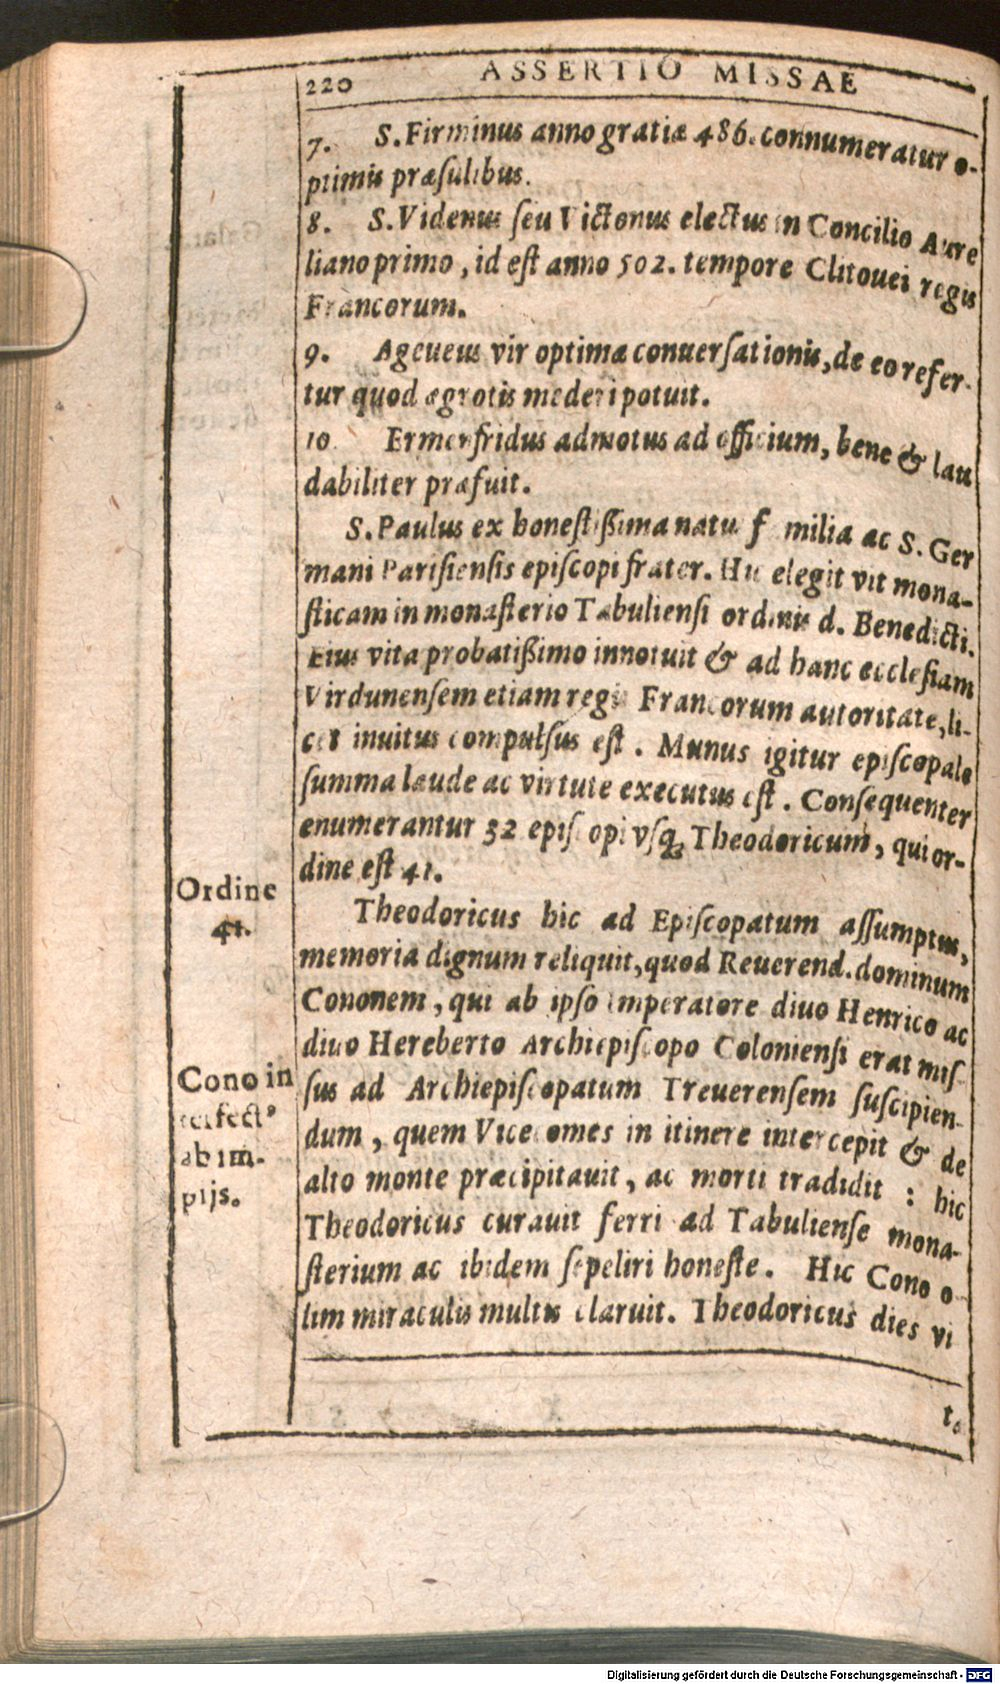 220 ASSERTIO MISSAE
7. S. Firminus anno gratiæ 486. connumeratur o-
ptimis præsulibus.
8. S. Videnus seu Victonus electus in Concilio Aure
liano primo, id est anno 502. tempore Clitouei regis
Francorum.
9. Ageueus vir optimæ conuersationis, de eo refer-
tur quod ægrotis mederi potuit.
10 Ermenfridus admotus ad officium, bene & lau
dabiliter præfuit.
S. Paulus ex honestissima natu familia ac S. Ger
mani Parisiensis episcopi frater. Hic elegit vit mona-
sticam in monasterio Tabuliensi ordinis d. Benedicti.
Eius vita probatissimo innotuit & ad hanc ecclesiam
Virdunensem etiam regis Francorum autoritate, li-
cet inuitus compulsus est. Munus igitur episcopale
summa laude ac virtute executus est. Consequenter
enumerantur 32 episcopi vsq; Theodoricum, qui or-
dine est 41.
Ordine
41.
Theodoricus hic ad Episcopatum assumptus,
memoria dignum reliquit, quod Reuerend. dominum
Cononem, qui ab ipso imperatore diuo Henrico ac
diuo Hereberto Archiepiscopo Coloniensi erat mis-
sus ad Archiepiscopatum Treuerensem suscipien-
dum, quem Vicecomes in itinere intercepit & de
alto monte præcipitauit, ac morti tradidit : hic
Theodoricus curauit ferri ad Tabuliense mona-
sterium ac ibidem sepeliri honeste. Hic Cono o-
lim miraculis multis claruit. Theodoricus dies vi
Cono in
terfect⁹
ab im-
pijs.
tæ
Digitalisierung gefördert durch die Deutsche Forschungsgemeinschaft - DFG